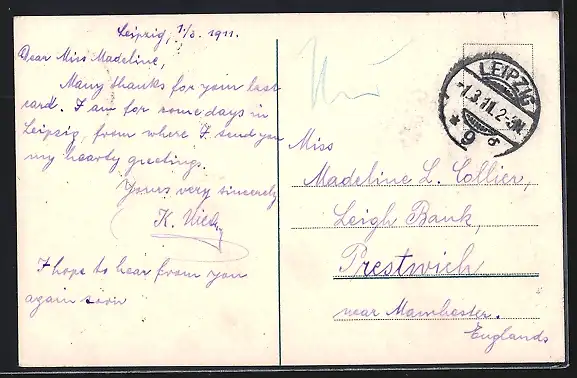 Leipzig, 1/3. 1911.
Dear Miss Madeline,
Many thanks for your last
card. I am for some days in
Leipzig, from where I send you
my hearty greetings.
Yours very sincerely
K.
I hope to hear from you
again soon
LEIPZIG
1.3.11.2-3N.
* 9 d
Miss
Madeline L. Collier,
Leigh Bank,
Prestwich
near Manchester.
Englands